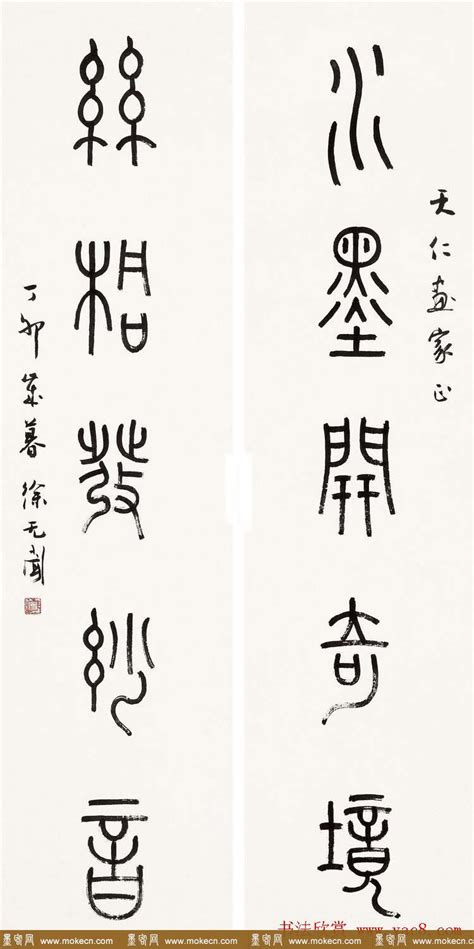 天仁画家正
水墨開奇境
絲桐發妙音
丁卯歲暮徐无聞
书法欣赏 www.yac8.com
墨客网 www.mokecn.com 墨客网 www.mokecn.com 墨客网 www.mokecn.com 墨客网 www.mokecn.com